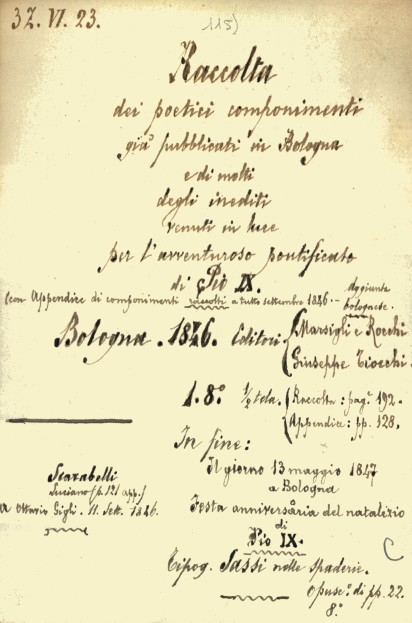 32. VI. 23.
115)
Raccolta
dei poetici componimenti
già pubblicati in Bologna
e di molti
degli inediti
venuti in luce
per l'avventuroso pontificato
di Pio IX.
(con Appendice di componimenti raccolti a tutto settembre 1846.-
aggiunta
bolognese.
Bologna. 1846. Editori
Marsigli e Rocchi
Giuseppe Tiocchi.
1. 8.° ½ tela.
Raccolta: pag. 192.
Appendice: pp. 128.
In fine:
Il giorno 13 maggio 1847
a Bologna
Festa anniversaria del natalizio
di
Pio IX.
Tipog. Sassi nelle spaderie.
Opusc.° di pp. 22.
8.°
Scarabelli
Luciano (p. 121 app.)
a Ottavio Gigli. 11. Sett. 1846.
C